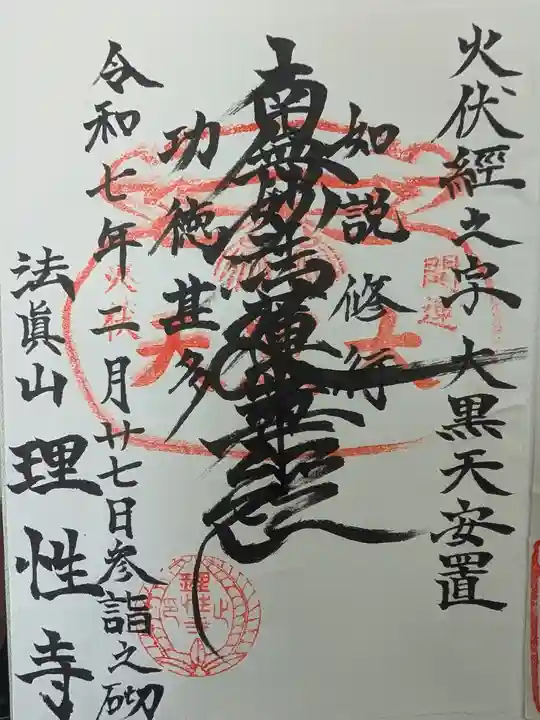 火伏經之字大黒天安置
如説修行
南無妙法蓮華経
功徳甚多
令和七年二月廿七日参詣之砌
法眞山理性寺
開運
大
天
火伏
理性寺